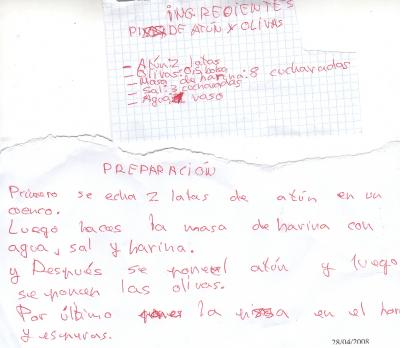 INGREDIENTES
DE ATÚN Y OLIVAS
- Atún:2 latas
- Olivas:0'5 bolsa
- Masa de harina:8 cucharadas
- Sal:3 cucharadas
- Agua 1 vaso
PREPARACIÓN
Primero se echa 2 latas de atún en un
cuenco.
Luego haces la masa de harina con
agua, sal y harina.
y Después se pone el atún y luego
se poncen las olivas.
Por último la pizza en el hor
y esperas.
28/04/2008